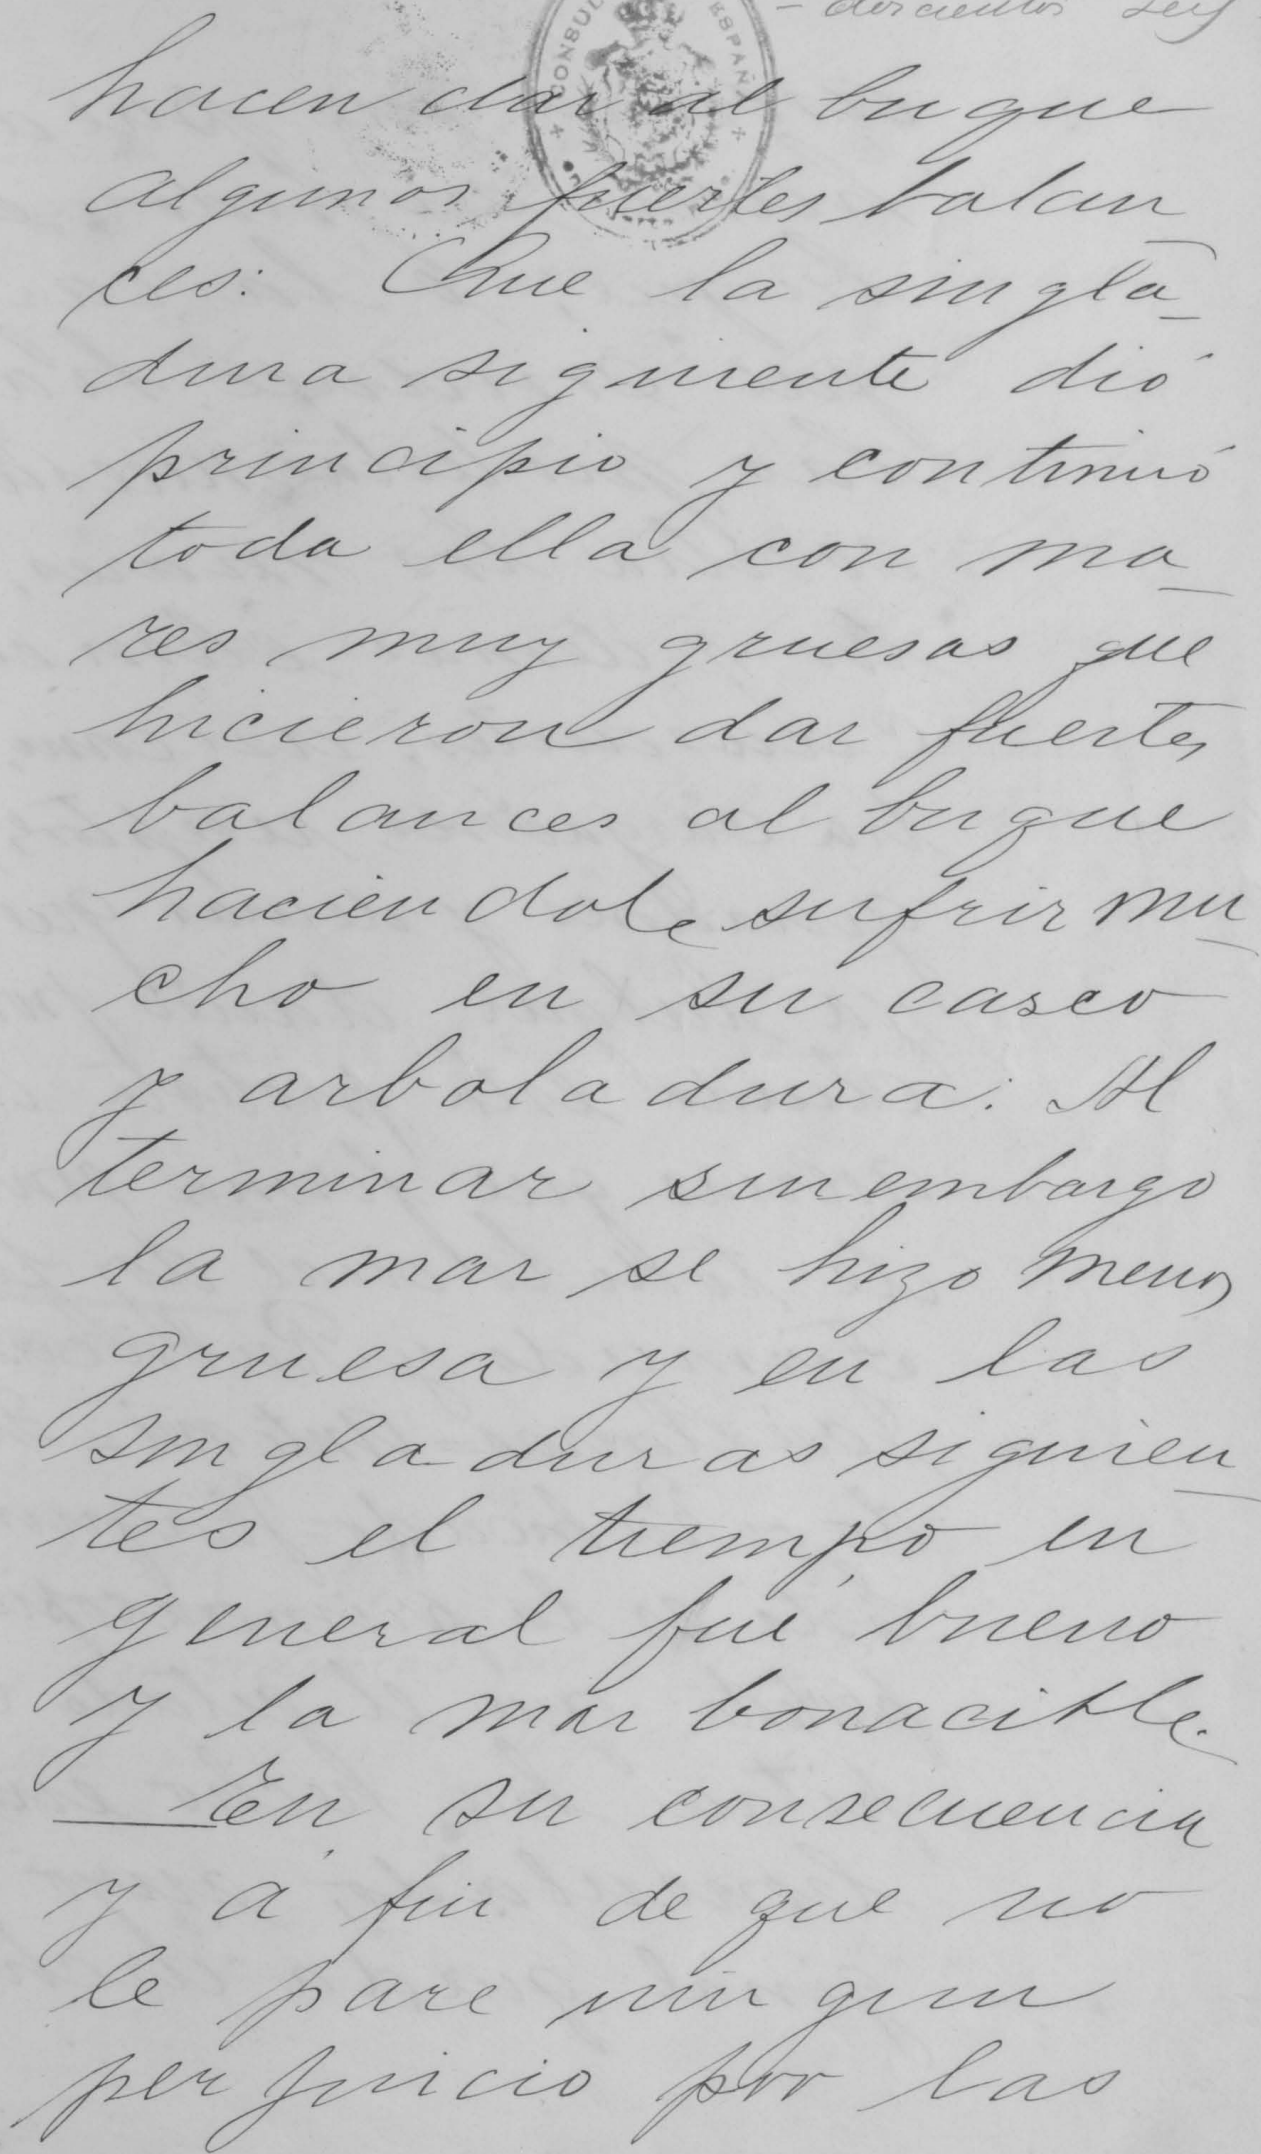 - doscientos seis
CONSUL ESPAÑA
hacen dar al buque
algunos fuertes balan
ces: Que la singla-
dura siguiente dió
principio y continuó
toda ella con ma-
res muy gruesas que
hicieron dar fuertes
balances al buque
haciendole sufrir mu-
cho en su casco
y arboladura: Al
terminar sinembargo
la mar se hizo menos
gruesa y en las
singladuras siguien-
tes el tiempo en
general fué bueno
y la mar bonacible.
—En su consecuencia
y á fin de que no
le pare ningun
perjuicio por las